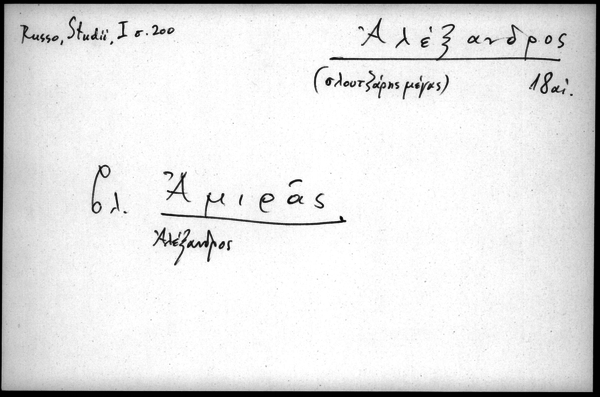 Russo, Studii, I σ. 200
Ἀλέξανδρος
(σλουτζάρης μέγας) 18 αἰ.
βλ. Ἀμιρᾶς
Ἀλέξανδρος